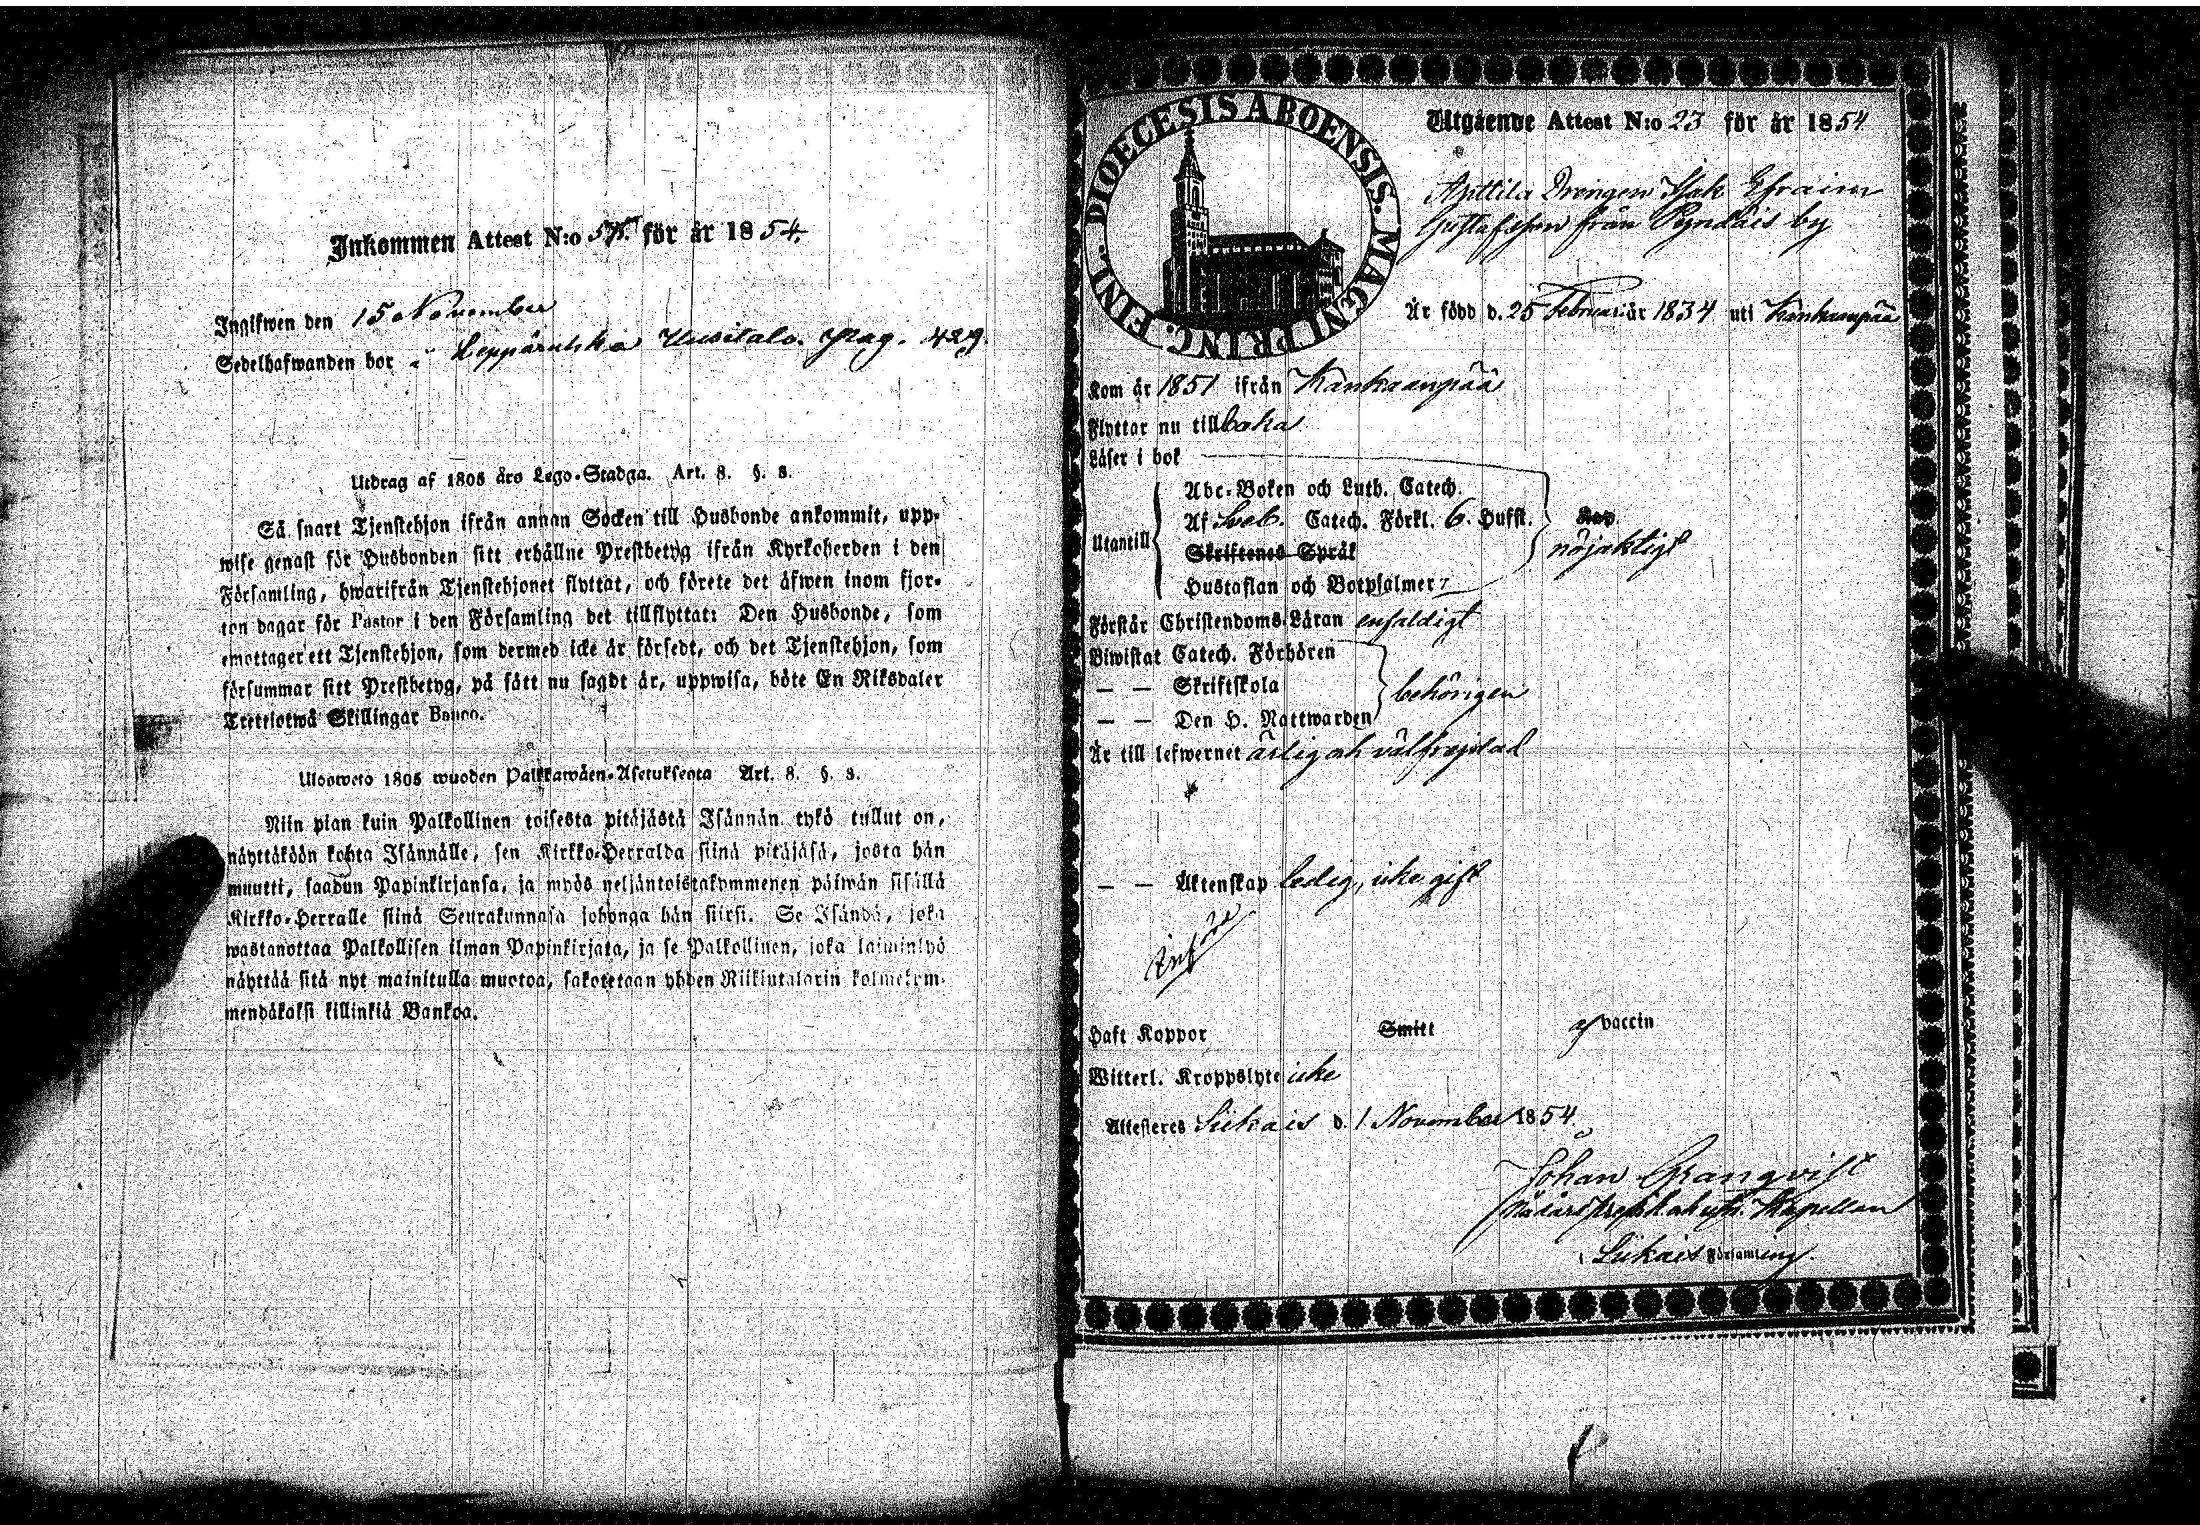 Inkommen Attest N:o för år 1854.
Ingifwen den 15 November
Sedelhafwanden bor i Leppäruhka Uusitalo. pag. 429.
Utdrag af 1805 års Lego-Stadga. Art. 8. §. 8.
Så snart Tjenstehjon ifrån annan Socken till Husbonde ankommit, upp-
wise genast för Husbonden sitt erhållne Prestbetyg ifrån Kyrkoherden i den
Församling, hwarifrån Tjenstehjonet flyttat, och förete det äfwen inom fjor-
ton dagar för Pastor i den Församling det tillflyttat: Den Husbonde, som
emottager ett Tjenstehjon, som dermed icke är försedt, och det Tjenstehjon, som
försummar sitt Prestbetyg, på sätt nu sagdt är, uppwisa, böte En Riksdaler
Tretetiotwå Skillingar Banco.
Ulosweto 1805 wuoden Palkkawäen-Asetuksesta Art. 8. §. 8.
Niin pian kuin Palkollinen toisesta pitäjästä Isännän tykö tullut on,
näyttäköön kohta Isännälle, sen Kirkko-Herralda siinä pitäjäsä, josta hän
muutti, saadun Papinkirjansa, ja myös neljäntoistakymmenen päiwän sisällä
Kirkko-Herralle siinä Seurakunnasa johonga hän siirsi. Se Isändä, joka
wastanottaa Palkollisen ilman Papinkirjata, ja se Palkollinen, joka laiminlyö
näyttää sitä nyt mainitulla muotoa, sakotetaan yhden Riikintalarin kolmekym-
mendäkaksi killinkiä Bankoa.
DIOECESIS ABOENSIS. MAGNI PRINC. FINL.
Utgående Attest N:o 23 för år 1854
Anttila Drengen Isak Efraim
Gustafsson från Pyndäis by
Är född d. 25 Februari år 1834 uti Kankaanpää
Kom år 1851 ifrån Kankaanpää
Flyttar nu tillbaka
Läser i bok
Utantill
Abc-Boken och Luth. Catech.
Af Sveb. Catech. Förkl. 6. Hufst.
Skriftenes Språk
Hustaflan och Botpsalmer
nöjaktigt
Förstår Christendoms-Läran enfaldigt
Biwistat Catech. Förhören
— — Skriftskola
— — Den H. Nattwarden
behörigen
Är till lefwernet ärlig och välfrejdad
— — Äktenskap ledig, icke gift
Haft Koppor Smitt af vaccin
Witterl. Kroppslyte icke
Attesteras Lukais d. 1 November 1854.
Johan Granqvist
Kapellan
Församling.